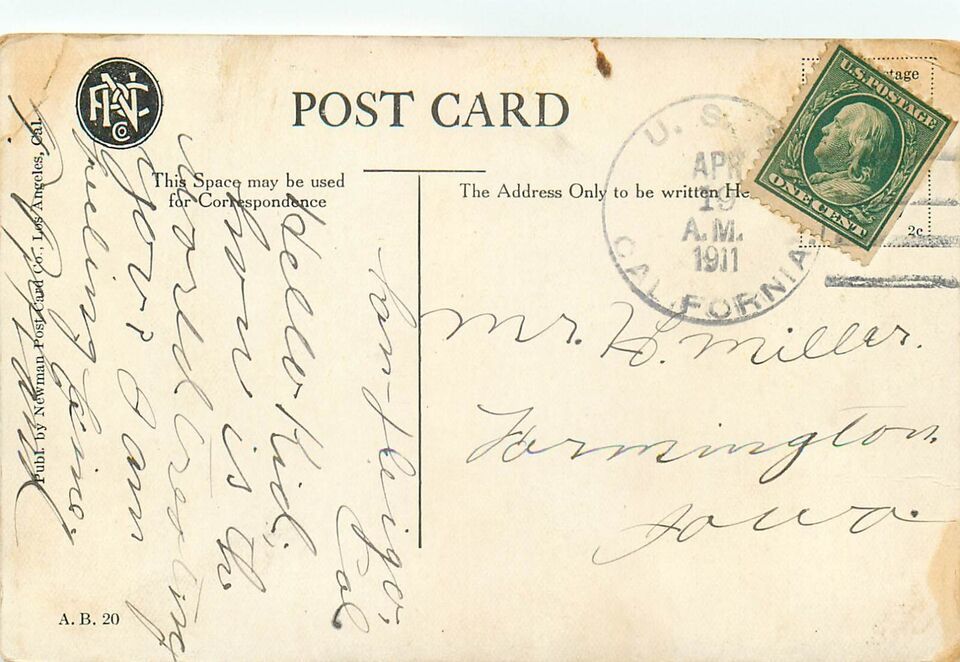 POST CARD
This Space may be used
for Correspondence
The Address Only to be written He
tage
2c.
U.S. POSTAGE
ONE CENT
U. S.
APR
19
A.M.
1911
CALIFORNIA
San-Deigo,
Cal
Hello Kid,
how is the
world treating
you? I am
feeling fine.
Mr. H. Miller.
Farmington,
Iowa.
Publ. by Newman Post Card Co., Los Angeles, Cal.
NPC
Co
A. B. 20